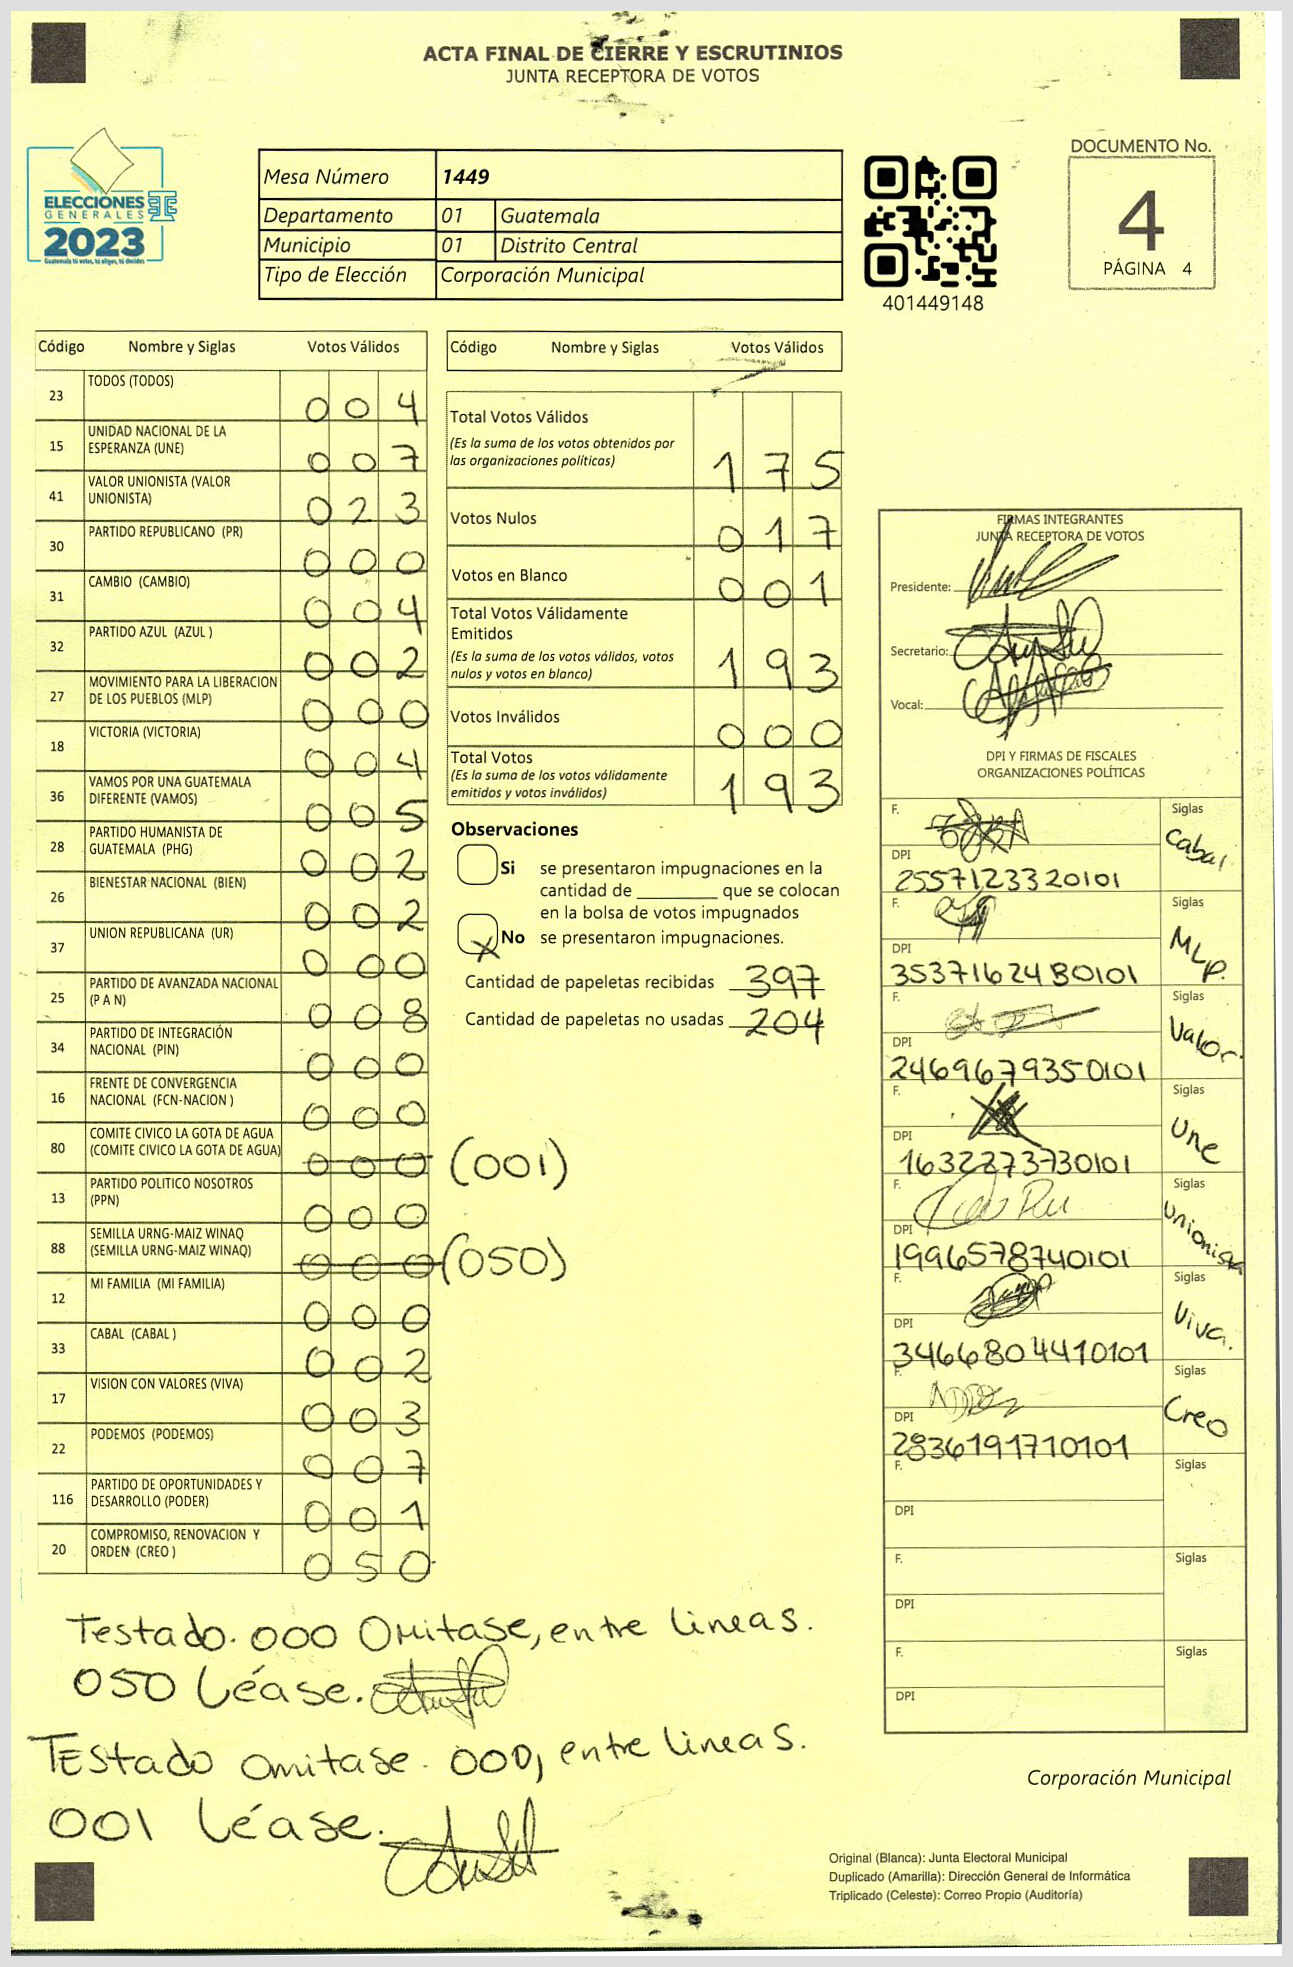 ACTA FINAL DE CIERRE Y ESCRUTINIOS
JUNTA RECEPTORA DE VOTOS
ELECCIONES
GENERALES
2023
Guatemala tú votas, tú eliges, tú decides
Mesa Número 1449
Departamento 01 Guatemala
Municipio 01 Distrito Central
Tipo de Elección Corporación Municipal
401449148
DOCUMENTO No.
4
PÁGINA 4
Código Nombre y Siglas Votos Válidos
23 TODOS (TODOS) 0 0 4
15 UNIDAD NACIONAL DE LA
ESPERANZA (UNE) 0 0 7
41 VALOR UNIONISTA (VALOR
UNIONISTA) 0 2 3
30 PARTIDO REPUBLICANO (PR) 0 0 0
31 CAMBIO (CAMBIO) 0 0 4
32 PARTIDO AZUL (AZUL ) 0 0 2
27 MOVIMIENTO PARA LA LIBERACION
DE LOS PUEBLOS (MLP) 0 0 0
18 VICTORIA (VICTORIA) 0 0 4
36 VAMOS POR UNA GUATEMALA
DIFERENTE (VAMOS) 0 0 5
28 PARTIDO HUMANISTA DE
GUATEMALA (PHG) 0 0 2
26 BIENESTAR NACIONAL (BIEN) 0 0 2
37 UNION REPUBLICANA (UR) 0 0 0
25 PARTIDO DE AVANZADA NACIONAL
(P A N) 0 0 8
34 PARTIDO DE INTEGRACIÓN
NACIONAL (PIN) 0 0 0
16 FRENTE DE CONVERGENCIA
NACIONAL (FCN-NACION ) 0 0 0
80 COMITE CIVICO LA GOTA DE AGUA
(COMITE CIVICO LA GOTA DE AGUA) 0 0 0 (001)
13 PARTIDO POLITICO NOSOTROS
(PPN) 0 0 0
88 SEMILLA URNG-MAIZ WINAQ
(SEMILLA URNG-MAIZ WINAQ) 0 0 0 (050)
12 MI FAMILIA (MI FAMILIA) 0 0 0
33 CABAL (CABAL ) 0 0 2
17 VISION CON VALORES (VIVA) 0 0 3
22 PODEMOS (PODEMOS) 0 0 7
116 PARTIDO DE OPORTUNIDADES Y
DESARROLLO (PODER) 0 0 1
20 COMPROMISO, RENOVACION Y
ORDEN (CREO ) 0 5 0
Código Nombre y Siglas Votos Válidos
Total Votos Válidos
(Es la suma de los votos obtenidos por
las organizaciones políticas) 1 7 5
Votos Nulos 0 1 7
Votos en Blanco 0 0 1
Total Votos Válidamente
Emitidos
(Es la suma de los votos válidos, votos
nulos y votos en blanco) 1 9 3
Votos Inválidos 0 0 0
Total Votos
(Es la suma de los votos válidamente
emitidos y votos inválidos) 1 9 3
Observaciones
Si se presentaron impugnaciones en la
cantidad de ________ que se colocan
en la bolsa de votos impugnados
X No se presentaron impugnaciones.
Cantidad de papeletas recibidas 397
Cantidad de papeletas no usadas 204
FIRMAS INTEGRANTES
JUNTA RECEPTORA DE VOTOS
Presidente:
Secretario:
Vocal:
DPI Y FIRMAS DE FISCALES
ORGANIZACIONES POLÍTICAS
F. Siglas
Cabal
DPI
2557123320101
F. Siglas
MLP.
DPI
3537162480101
F. Siglas
Valor
DPI
2469679350101
F. Siglas
Une
DPI
1632273730101
F. Siglas
Unionista
DPI
1996578740101
F. Siglas
Viva.
DPI
3466804410101
F. Siglas
Creo
DPI
2836191710101
F. Siglas
DPI
F. Siglas
DPI
F. Siglas
DPI
Testado. 000 Omitase, entre lineas.
050 Léase.
TEstado omitase. 000, entre lineas.
001 Léase.
Corporación Municipal
Original (Blanca): Junta Electoral Municipal
Duplicado (Amarilla): Dirección General de Informática
Triplicado (Celeste): Correo Propio (Auditoría)